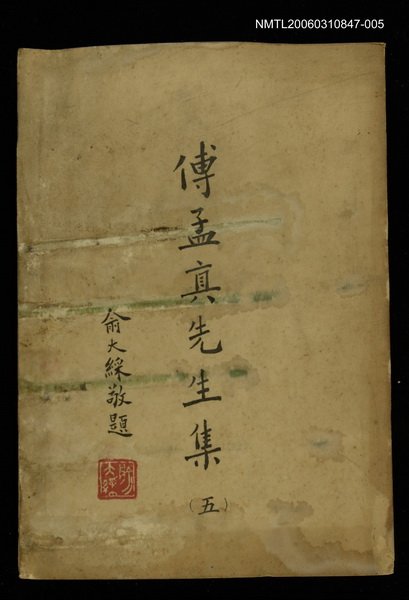 NMTL20060310847-005
傅孟真先生集
(五)
俞大綵敬題